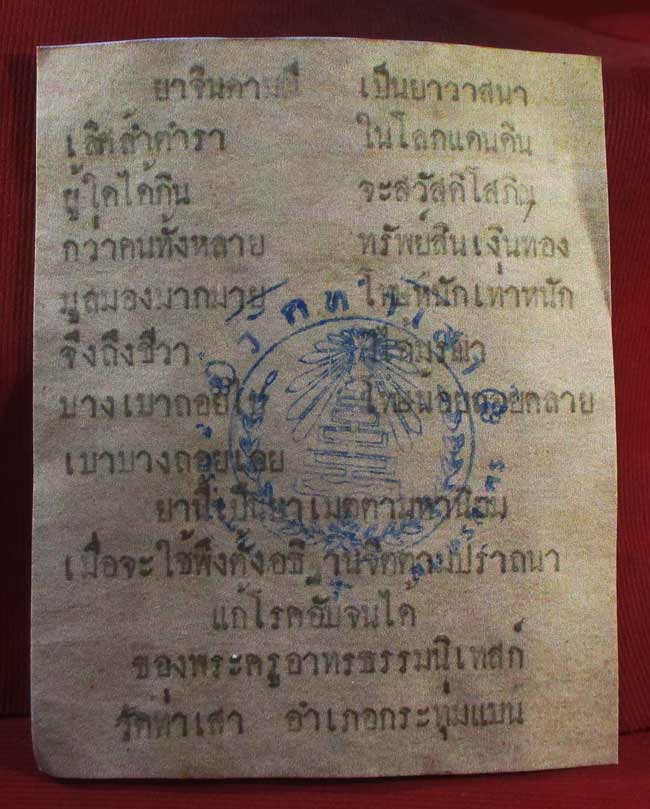 ยาจินดามณี เป็นยาวาสนา
เลิศล้ำตำรา ในโลกแดนดิน
ผู้ใดได้กิน จะสวัสดิโสภิณ
กว่าคนทั้งหลาย ทรัพย์สินเงินทอง
มูลมองมากมาย โทษหนักเท่าหนัก
จึงถึงชีวา
บางเบาถอยไป โทษน้อยถอยคลาย
เบาบางถอยเอย
ยานี้เป็นยาเมตตามหานิยม
เมื่อจะใช้พึงตั้งอธิ านจิตตามปราถนา
แก้โรคอับจนได้
ของพระครูอาทรธรรมนิเทสก์
วัดท่าเสา อำเภอกระทุ่มแบน
วัดท่าเสา